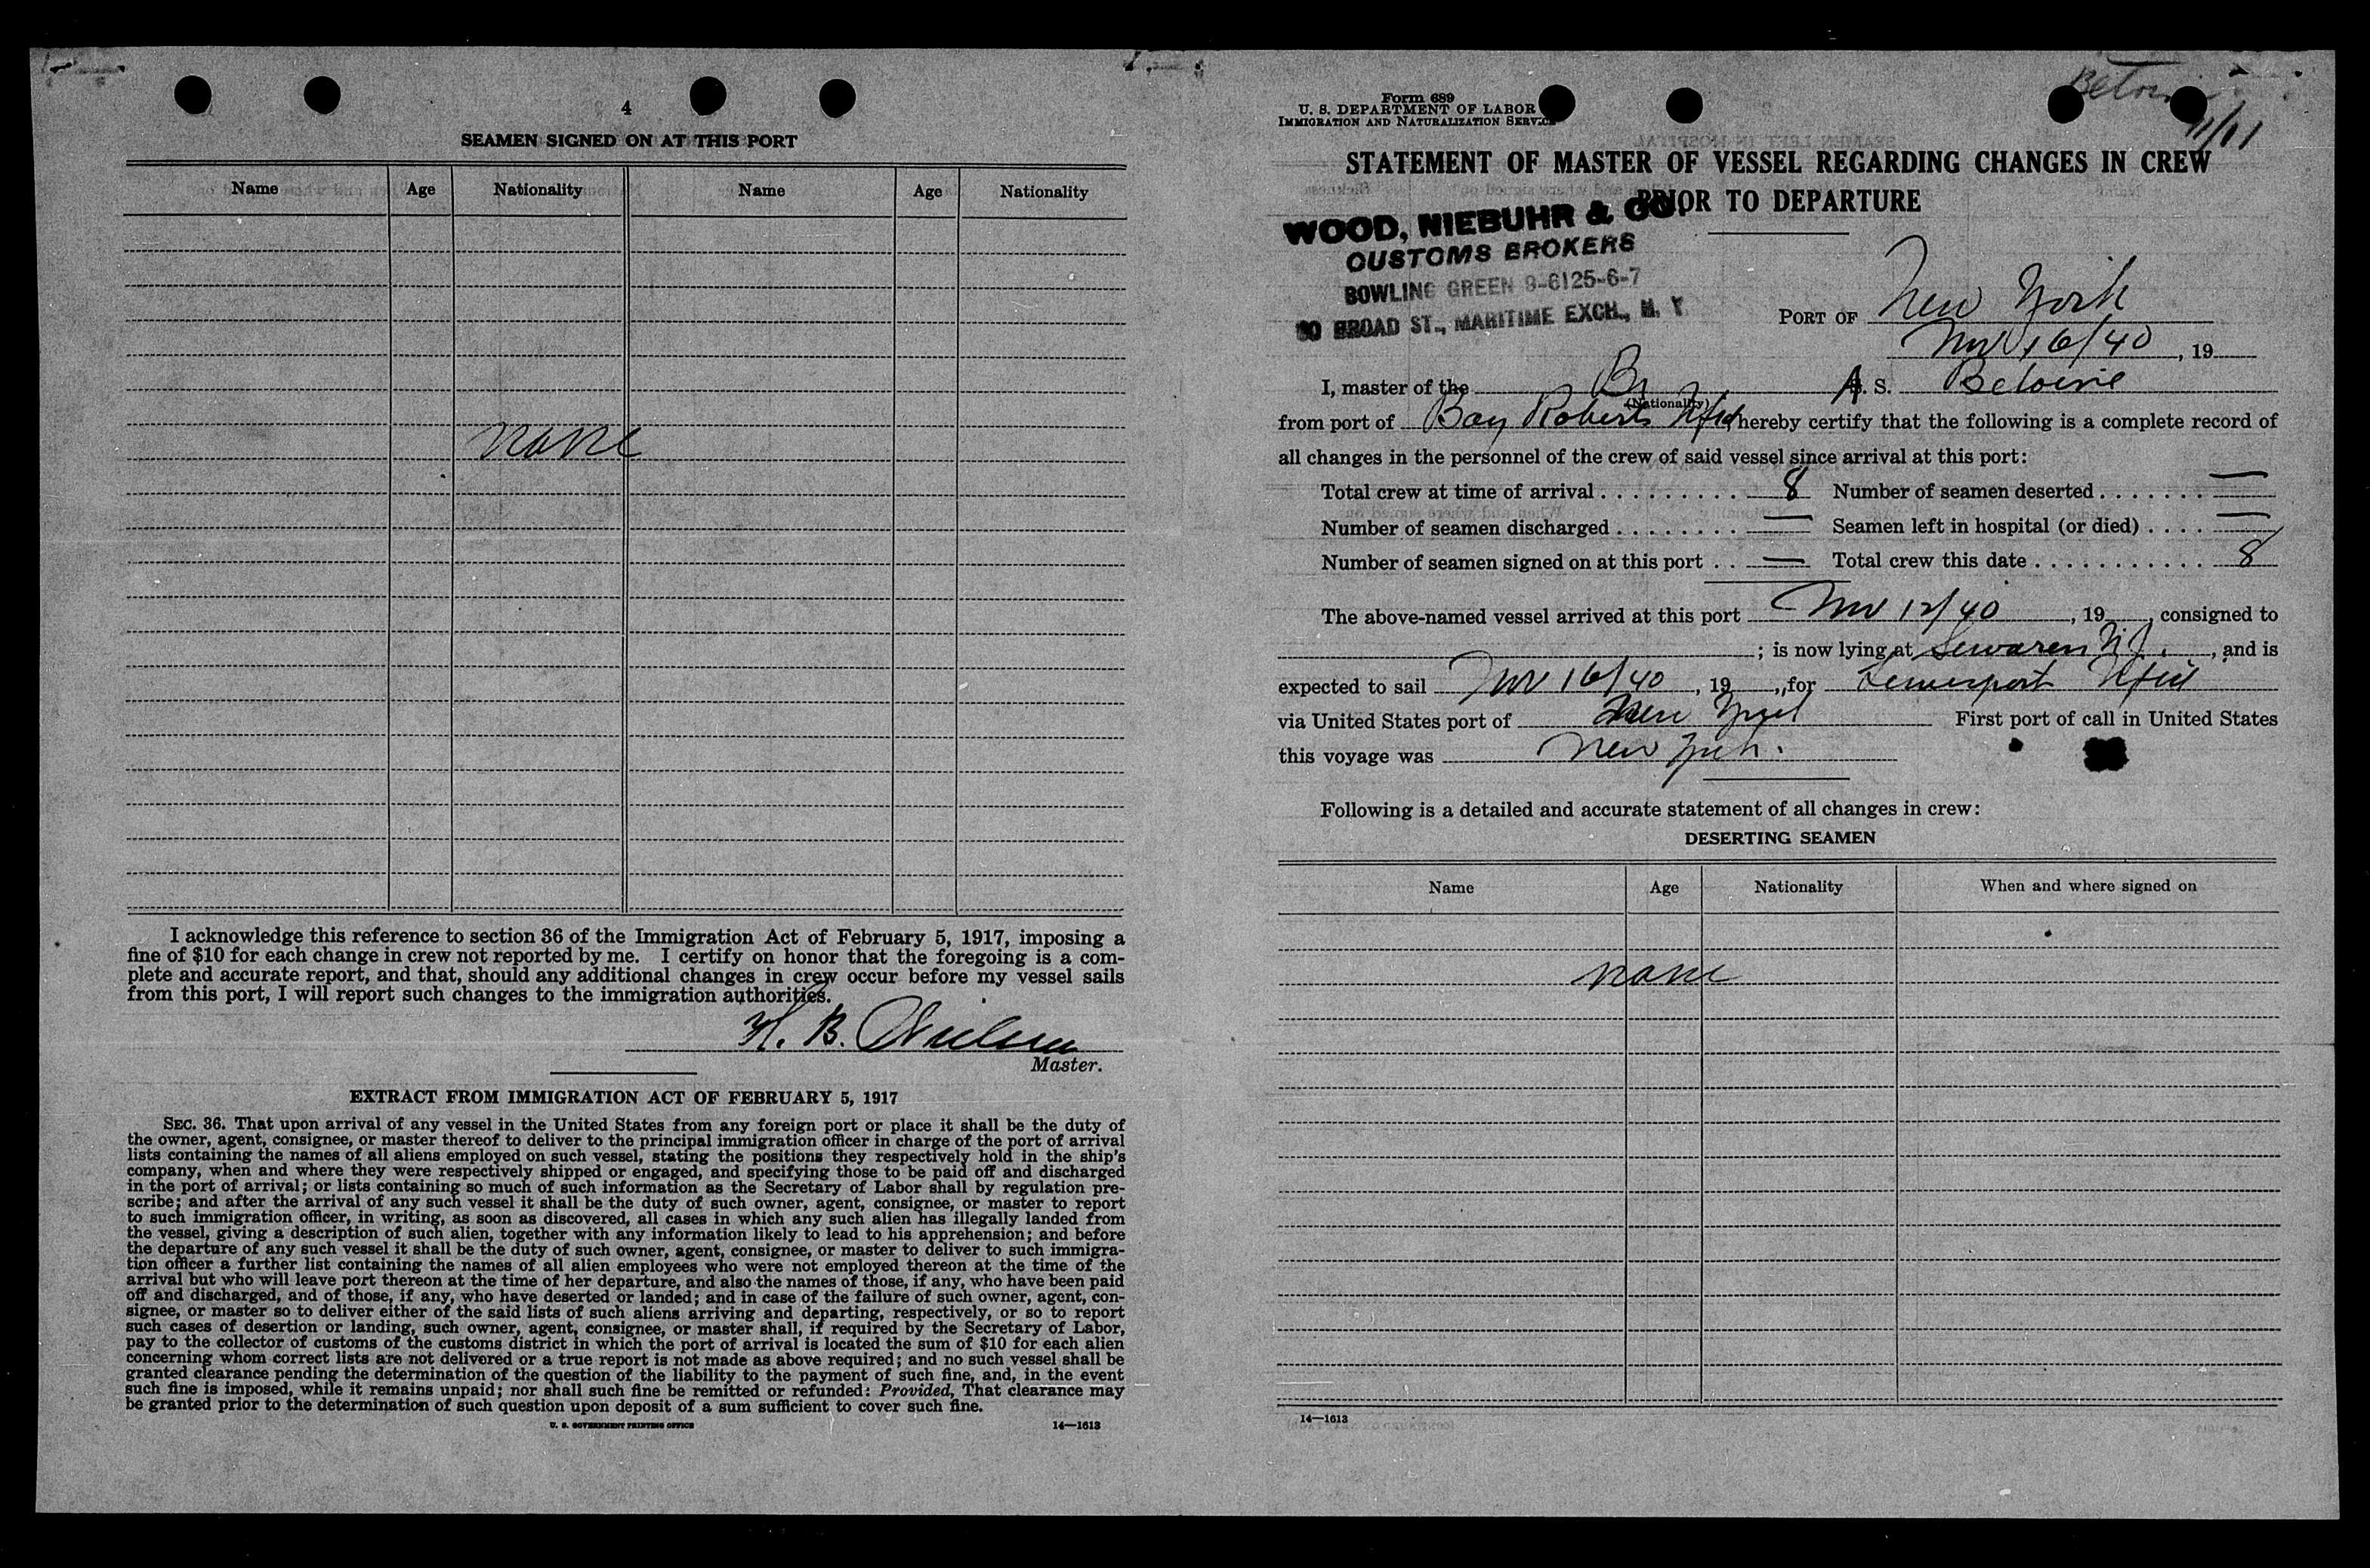 4
SEAMEN SIGNED ON AT THIS PORT
Name Age Nationality Name Age Nationality
none
I acknowledge this reference to section 36 of the Immigration Act of February 5, 1917, imposing a
fine of $10 for each change in crew not reported by me. I certify on honor that the foregoing is a com-
plete and accurate report, and that, should any additional changes in crew occur before my vessel sails
from this port, I will report such changes to the immigration authorities.
H. B.
Master.
EXTRACT FROM IMMIGRATION ACT OF FEBRUARY 5, 1917
SEC. 36. That upon arrival of any vessel in the United States from any foreign port or place it shall be the duty of
the owner, agent, consignee, or master thereof to deliver to the principal immigration officer in charge of the port of arrival
lists containing the names of all aliens employed on such vessel, stating the positions they respectively hold in the ship's
company, when and where they were respectively shipped or engaged, and specifying those to be paid off and discharged
in the port of arrival; or lists containing so much of such information as the Secretary of Labor shall by regulation pre-
scribe; and after the arrival of any such vessel it shall be the duty of such owner, agent, consignee, or master to report
to such immigration officer, in writing, as soon as discovered, all cases in which any such alien has illegally landed from
the vessel, giving a description of such alien, together with any information likely to lead to his apprehension; and before
the departure of any such vessel it shall be the duty of such owner, agent, consignee, or master to deliver to such immigra-
tion officer a further list containing the names of all alien employees who were not employed thereon at the time of the
arrival but who will leave port thereon at the time of her departure, and also the names of those, if any, who have been paid
off and discharged, and of those, if any, who have deserted or landed; and in case of the failure of such owner, agent, con-
signee, or master so to deliver either of the said lists of such aliens arriving and departing, respectively, or so to report
such cases of desertion or landing, such owner, agent, consignee, or master shall, if required by the Secretary of Labor,
pay to the collector of customs of the customs district in which the port of arrival is located the sum of $10 for each alien
concerning whom correct lists are not delivered or a true report is not made as above required; and no such vessel shall be
granted clearance pending the determination of the question of the liability to the payment of such fine, and, in the event
such fine is imposed, while it remains unpaid; nor shall such fine be remitted or refunded: Provided, That clearance may
be granted prior to the determination of such question upon deposit of a sum sufficient to cover such fine.
U. S. GOVERNMENT PRINTING OFFICE 14—1613
Form 689
U. S. DEPARTMENT OF LABOR
IMMIGRATION AND NATURALIZATION SERVICE
STATEMENT OF MASTER OF VESSEL REGARDING CHANGES IN CREW
PRIOR TO DEPARTURE
WOOD, NIEBUHR & CO.
CUSTOMS BROKERS
BOWLING GREEN 9-6125-6-7
80 BROAD ST., MARITIME EXCH., N. Y
PORT OF New York
Nov 16/40, 19
I, master of the Br S. Betoine
(Nationality)
from port of Bay Roberts Nfld, hereby certify that the following is a complete record of
all changes in the personnel of the crew of said vessel since arrival at this port:
Total crew at time of arrival 8 Number of seamen deserted —
Number of seamen discharged — Seamen left in hospital (or died) —
Number of seamen signed on at this port — Total crew this date 8
The above-named vessel arrived at this port Nov 12/40, 19, consigned to
; is now lying at Sewaren N.J., and is
expected to sail Nov 16/40, 19, for Lewisport Nfld
via United States port of New York First port of call in United States
this voyage was New York.
Following is a detailed and accurate statement of all changes in crew:
DESERTING SEAMEN
Name Age Nationality When and where signed on
none
14—1613